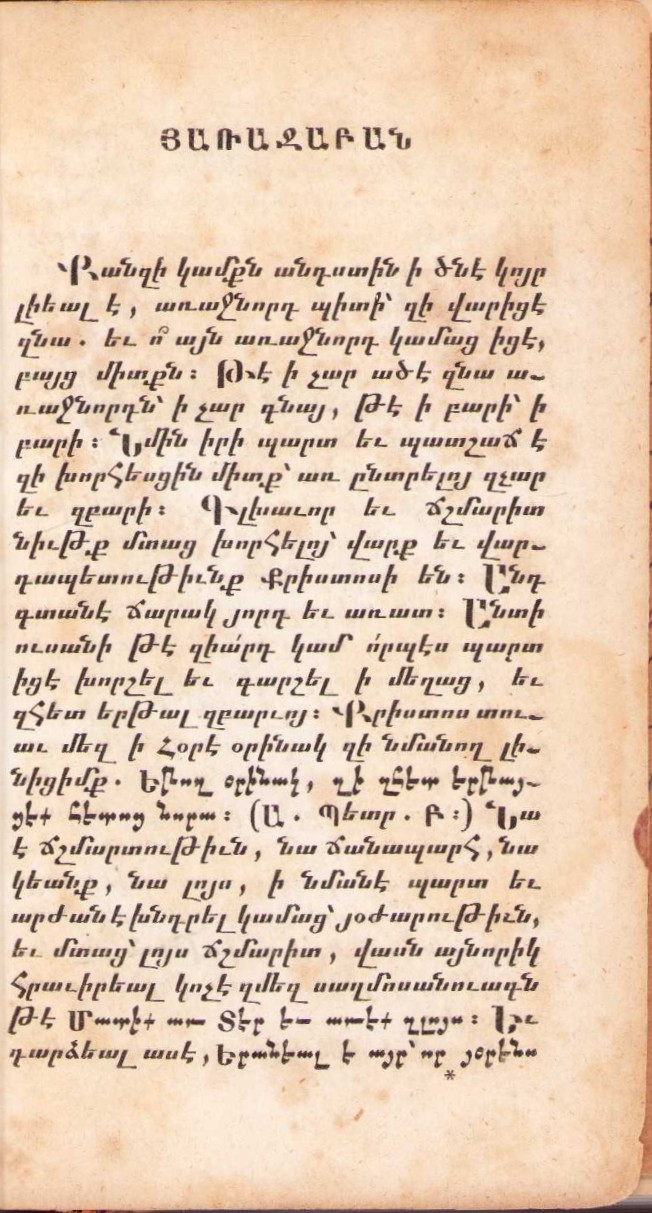 ՅԱՌԱՋԱԲԱՆ
Քանզի կամքն անդստին ի ծնէ կոյր
լիեալ է, առաջնորդ պիտի՝ զի վարիցէ
զնա. եւ ո՞ այն առաջնորդ կամաց իցէ,
բայց միտքն։ Թէ ի չար ածէ զնա ա-
ռաջնորդն՝ ի չար գնայ, թէ ի բարի՝ ի
բարի։ Ամին իրի պարտ եւ պատշաճ է
զի խորհեսցին միտք՝ առ ընտրելոյ զչար
եւ զբարի։ Գլխաւոր եւ ճշմարիտ
նիւթք մտաց խորհելոյ՝ վարք եւ վար-
դապետութիւնք Քրիստոսի են։ Ընդ
գտանէ ճարակ յորդ եւ առատ։ Ընտի
ուսանի թէ զիա՛րդ կամ ո՛րպէս պարտ
իցէ խորշել եւ գարշել ի մեղաց, եւ
զհետ երթալ զբարւոյ։ Քրիստոս տու-
աւ մեզ ի Հօրէ օրինակ զի նմանող լի-
նիցիմք. Եթող օրինակ, զի զհետ երթայ-
ցէք հետոց նորա։ (Ա. Պետր. Բ։) Նա
է ճշմարտութիւն, նա ճանապարհ, նա
կեանք, նա լոյս, ի նմանէ պարտ եւ
արժան է խնդրել կամաց՝ յօժարութիւն,
եւ մտաց՝ լոյս ճշմարիտ, վասն այնորիկ
հրաւիրեալ կոչէ զմեզ սաղմոսանուագն
թէ Մատիք առ Տէր եւ առէք զլոյս։ Եւ
դարձեալ ասէ, Երանեալ է այր՝ որ յօրէնս
*